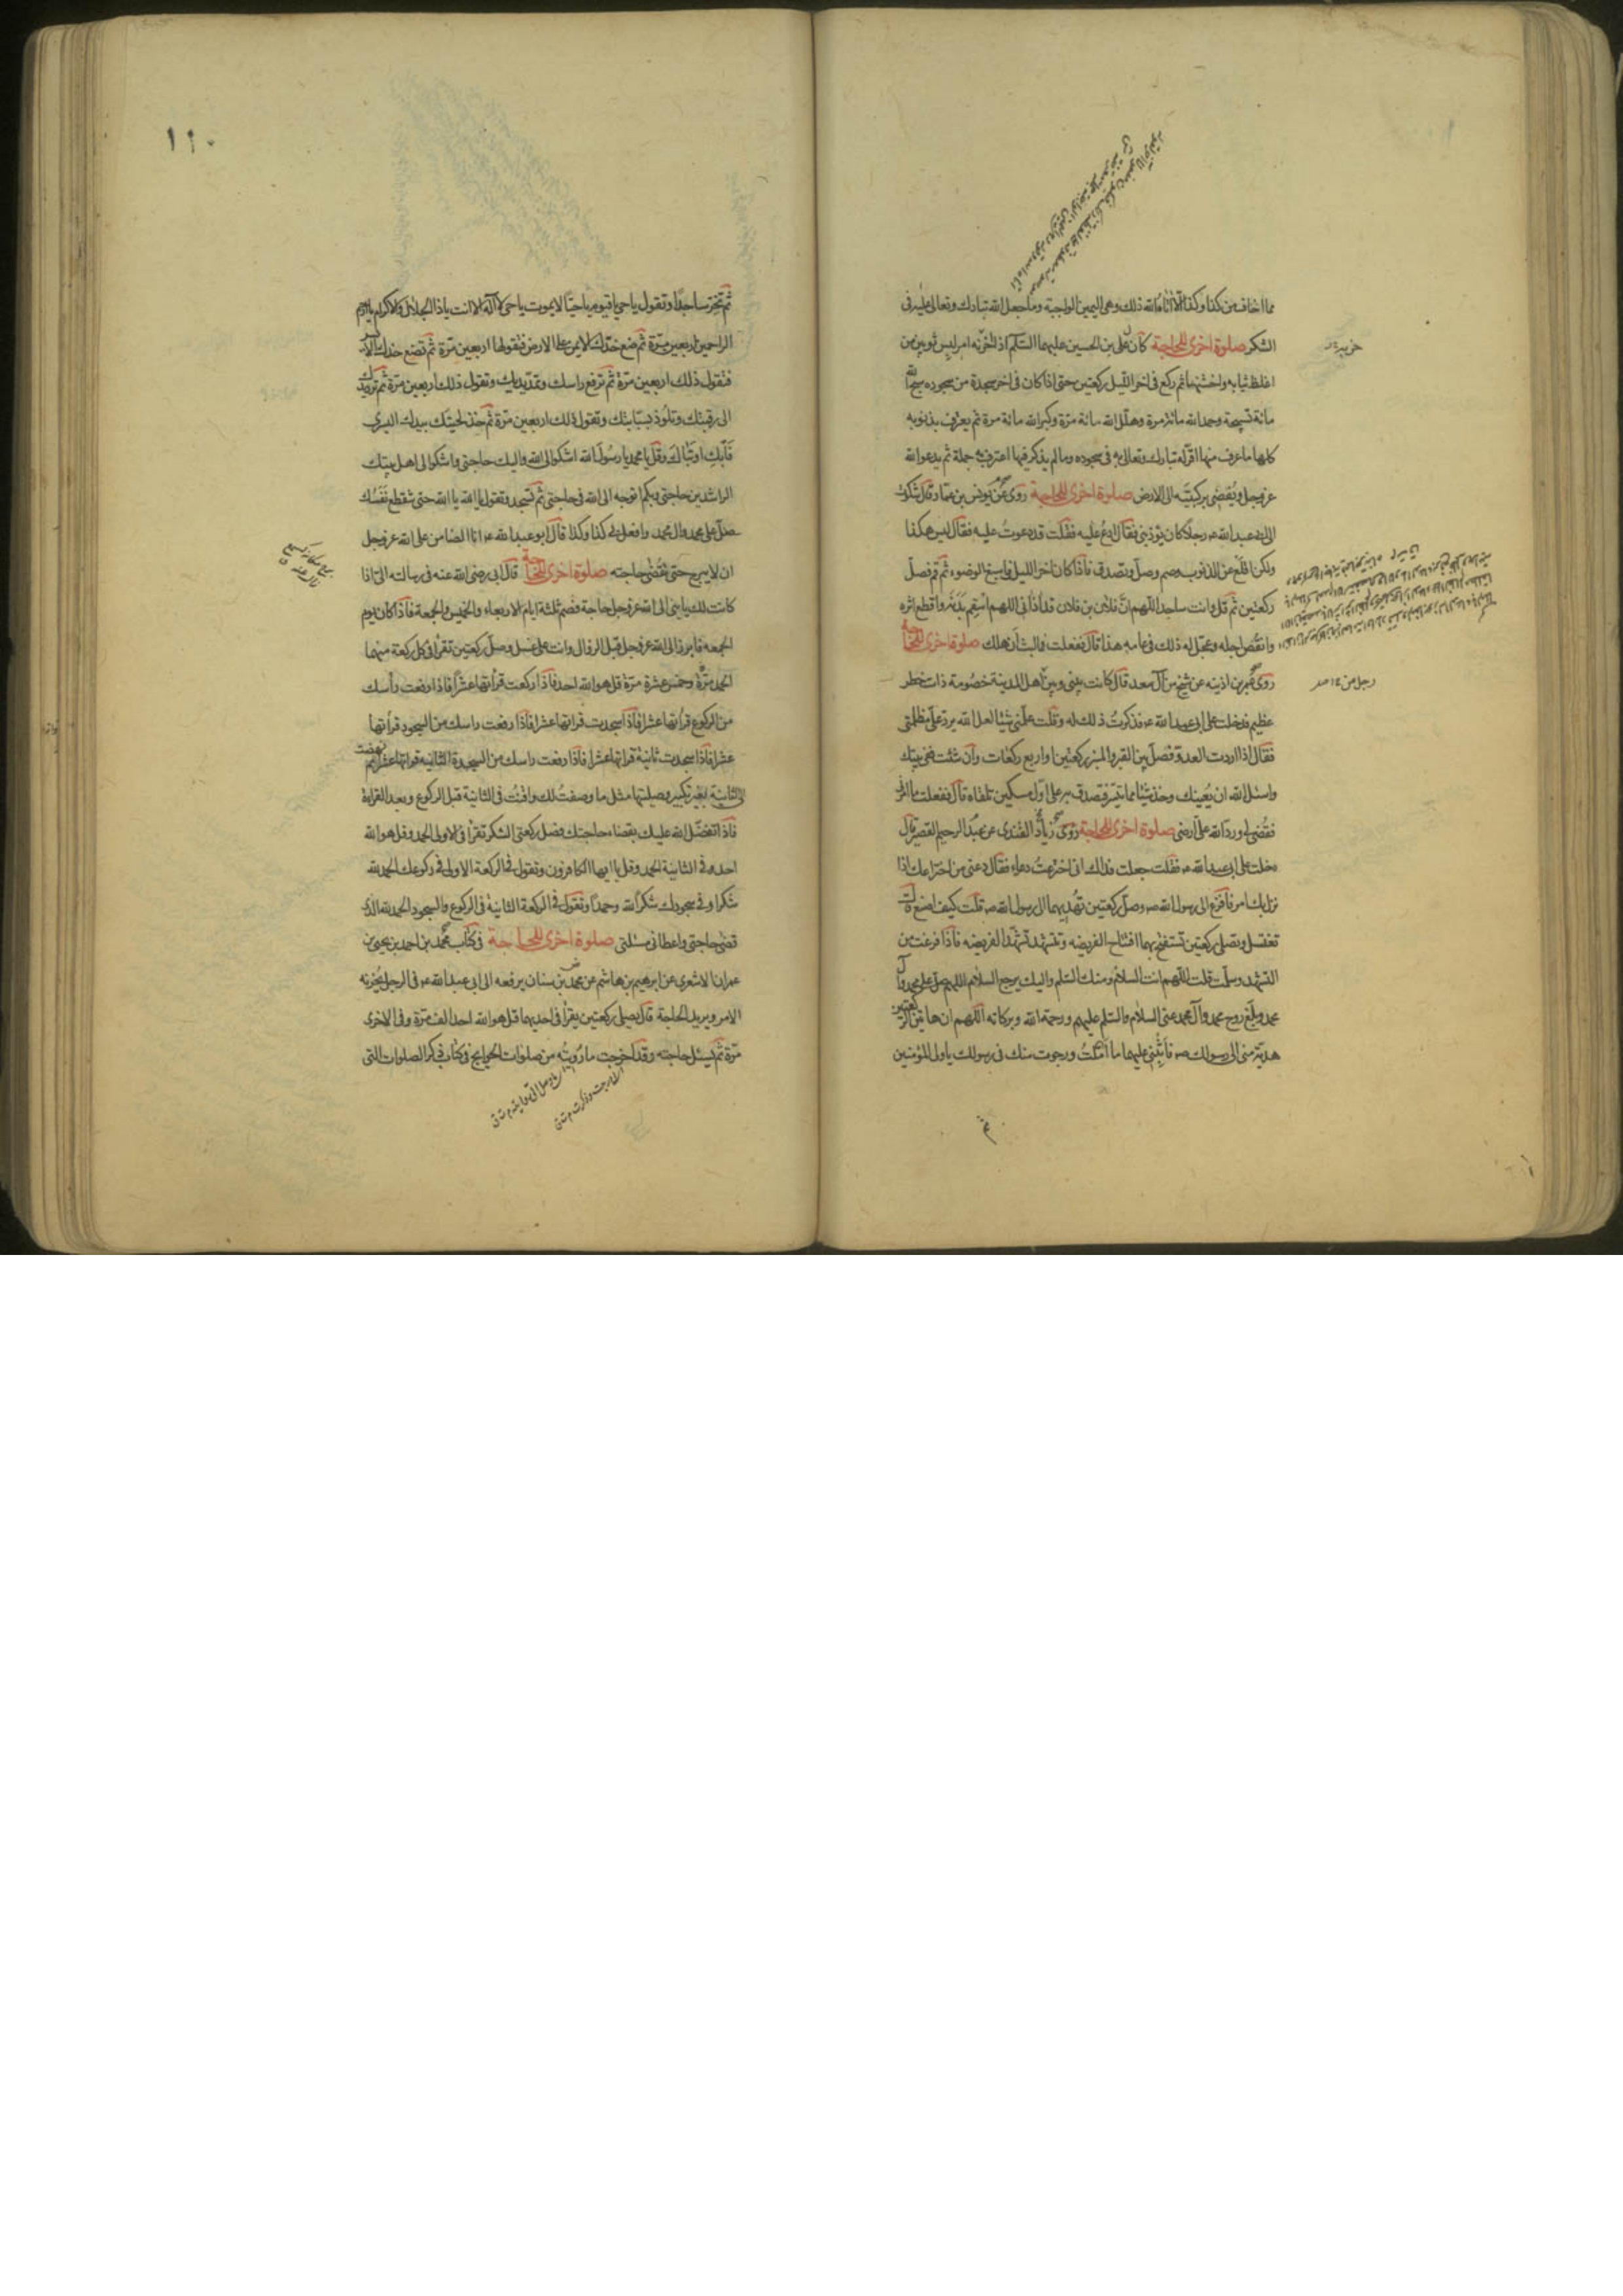 مما اخاف من كذا وكذا الا اتاه الله ذلك وهى اليمين الواجبة وما جعل الله تبارك وتعالى عليه فى
الشكر صلوة اخرى للحاجة كان على بن الحسين عليهما السلم اذا حزنه امر لبس ثوبين من
اغلظ ثيابه واخشنها ثم ركع فى اخر الليل ركعتين حتى اذا كان فى اخر سجدة من سجوده سبح الله
مائة تسبيحة وحمد الله مائة مرة وهلل الله مائة مرة وكبر الله مائة مرة ثم يعترف بذنوبه
كلها ما عرف منها اقر له تبارك وتعالى به فى سجوده وما لم يذكر منها اعترف به جملة ثم يدعو الله
عز وجل ويفضى بركبتيه الى الارض صلوة اخرى للحاجة روى عن يونس بن عمار قال شكوت
الى ابى عبد الله ع رجلا كان يؤذينى فقال ادع عليه فقلت قد دعوت عليه فقال ليس هكذا
ولكن اقلع عن الذنوب وصم وصل وتصدق فاذا كان اخر الليل فاسبغ الوضوء ثم قم فصل
ركعتين ثم قل وانت ساجد اللهم ان فلان بن فلان قد اذانى اللهم اسقم بدنه واقطع اثره
وانقص اجله وعجل له ذلك فى عامه هذا قال ففعلت فما لبث ان هلك صلوة اخرى للحاجة
روى عمر بن اذينه عن شيخ من آل سعد قال كانت بينى وبين اهل المدينة خصومة ذات خطر
رجل من
عظيم فدخلت على ابى عبد الله ع فذكرت ذلك له وقلت علمنى شيئا لعل الله يرد على مظلمتى
فقال اذا اردت العدو فصل بين القبر والمنبر ركعتين او اربع ركعات وان شئت ففى بيتك
واسئل الله ان يعينك وخذ شيئا مما تيسر فتصدق به على اول مسكين تلقاه قال ففعلت ما امرنى
فقضى لى ورد الله على ارضى صلوة اخرى للحاجة روى زياد القندى عن عبد الرحيم القصير قال
دخلت على ابى عبد الله ع فقلت جعلت فداك انى اخترعت دعاء فقال دعنى من اختراعك اذا
نزل بك امر فافزع الى رسول الله ص وصل ركعتين تهديهما الى رسول الله ص قلت كيف اصنع قال
تغتسل وتصلى ركعتين تستفتح بهما افتتاح الفريضه وتشهد تشهد الفريضه فاذا فرغت من
التشهد وسلمت قلت اللهم انت السلام ومنك السلم واليك يرجع السلام اللهم صل على محمد وآل
محمد وبلغ روح محمد وآل محمد عنى السلام والسلم عليهم ورحمة الله وبركاته اللهم ان هاتين الركعتين
هدية منى الى رسولك ص فاثبنى عليهما ما املت ورجوت منك فى رسولك يا ولى المؤمنين
ثم
١١٠
ثم تخر ساجدا وتقول يا حى يا قيوم يا حيا لا يموت يا حى لا اله الا انت يا ذا الجلال والاكرام يا ارحم
الراحمين اربعين مرة ثم ضع خدك الايمن على الارض فتقولها اربعين مرة ثم تضع خدك الايسر
فتقول ذلك اربعين مرة ثم ترفع راسك وتمد يديك وتقول ذلك اربعين مرة ثم ترد يدك
الى رقبتك وتلوذ بسبابتك وتقول ذلك اربعين مرة ثم خذ لحيتك بيدك اليسرى
فابك او تباك وقل يا محمد يا رسول الله اشكو الى الله واليك حاجتى واشكو الى اهل بيتك
الراشدين حاجتى وبكم اتوجه الى الله فى حاجتى ثم تسجد وتقول يا الله يا الله حتى ينقطع نفسك
صل على محمد وال محمد وافعل بى كذا وكذا قال ابو عبد الله ع انا الضامن على الله عز وجل
ان لا يبرح حتى تقضى حاجته صلوة اخرى للحاجة قال ابى رضى الله عنه فى رسالته الى اذا
كانت لك يا بنى الى الله عز وجل حاجة فصم ثلثة ايام الاربعاء والخميس والجمعة فاذا كان يوم
الجمعه فابرز الى الله عز وجل قبل الزوال وانت على غسل وصل ركعتين تقرأ فى كل ركعة منهما
الحمد مرة وخمس عشرة مرة قل هو الله احد فاذا ركعت قرأتها عشرا فاذا رفعت رأسك
من الركوع قرأتها عشرا فاذا سجدت قرأتها عشرا فاذا رفعت راسك من السجود قرأتها
عشرا فاذا سجدت ثانية قرأتها عشرا فاذا رفعت راسك من السجدة الثانيه قرأتها عشرا ثم نهضت
الى الثانية بغير تكبير وصليتها مثل ما وصفت لك واقنت فى الثانية قبل الركوع وبعد القراءة
فاذا تفضل الله عليك بقضاء حاجتك فصل ركعتى الشكر تقرأ فى الاولى الحمد وقل هو الله
احد و فى الثانية الحمد وقل يا ايها الكافرون وتقول فى الركعة الاولى فى ركوعك الحمد لله
شكرا وفى سجودك شكرا لله وحمدا وتقول فى الركعة الثانية فى الركوع والسجود الحمد لله الذى
قضى حاجتى واعطانى مسئلتى صلوة اخرى للحاجة فى كتاب محمد بن احمد بن يحيى بن
عمران الاشعرى عن ابرهيم بن هاشم عن محمد بن سنان يرفعه الى ابى عبد الله ع فى الرجل يحزنه
الامر ويريد الحاجة قال يصلى ركعتين يقرأ فى احديهما قل هو الله احد الف مرة وفى الاخرى
مرة ثم يسئل حاجته وقد اخرجت ما رويته من صلوات الحوايج فى كتاب ذكر الصلوات التى